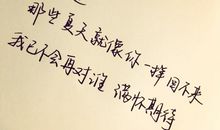 那些夏天就像你一样回不来
我已不会再对谁 满怀期待